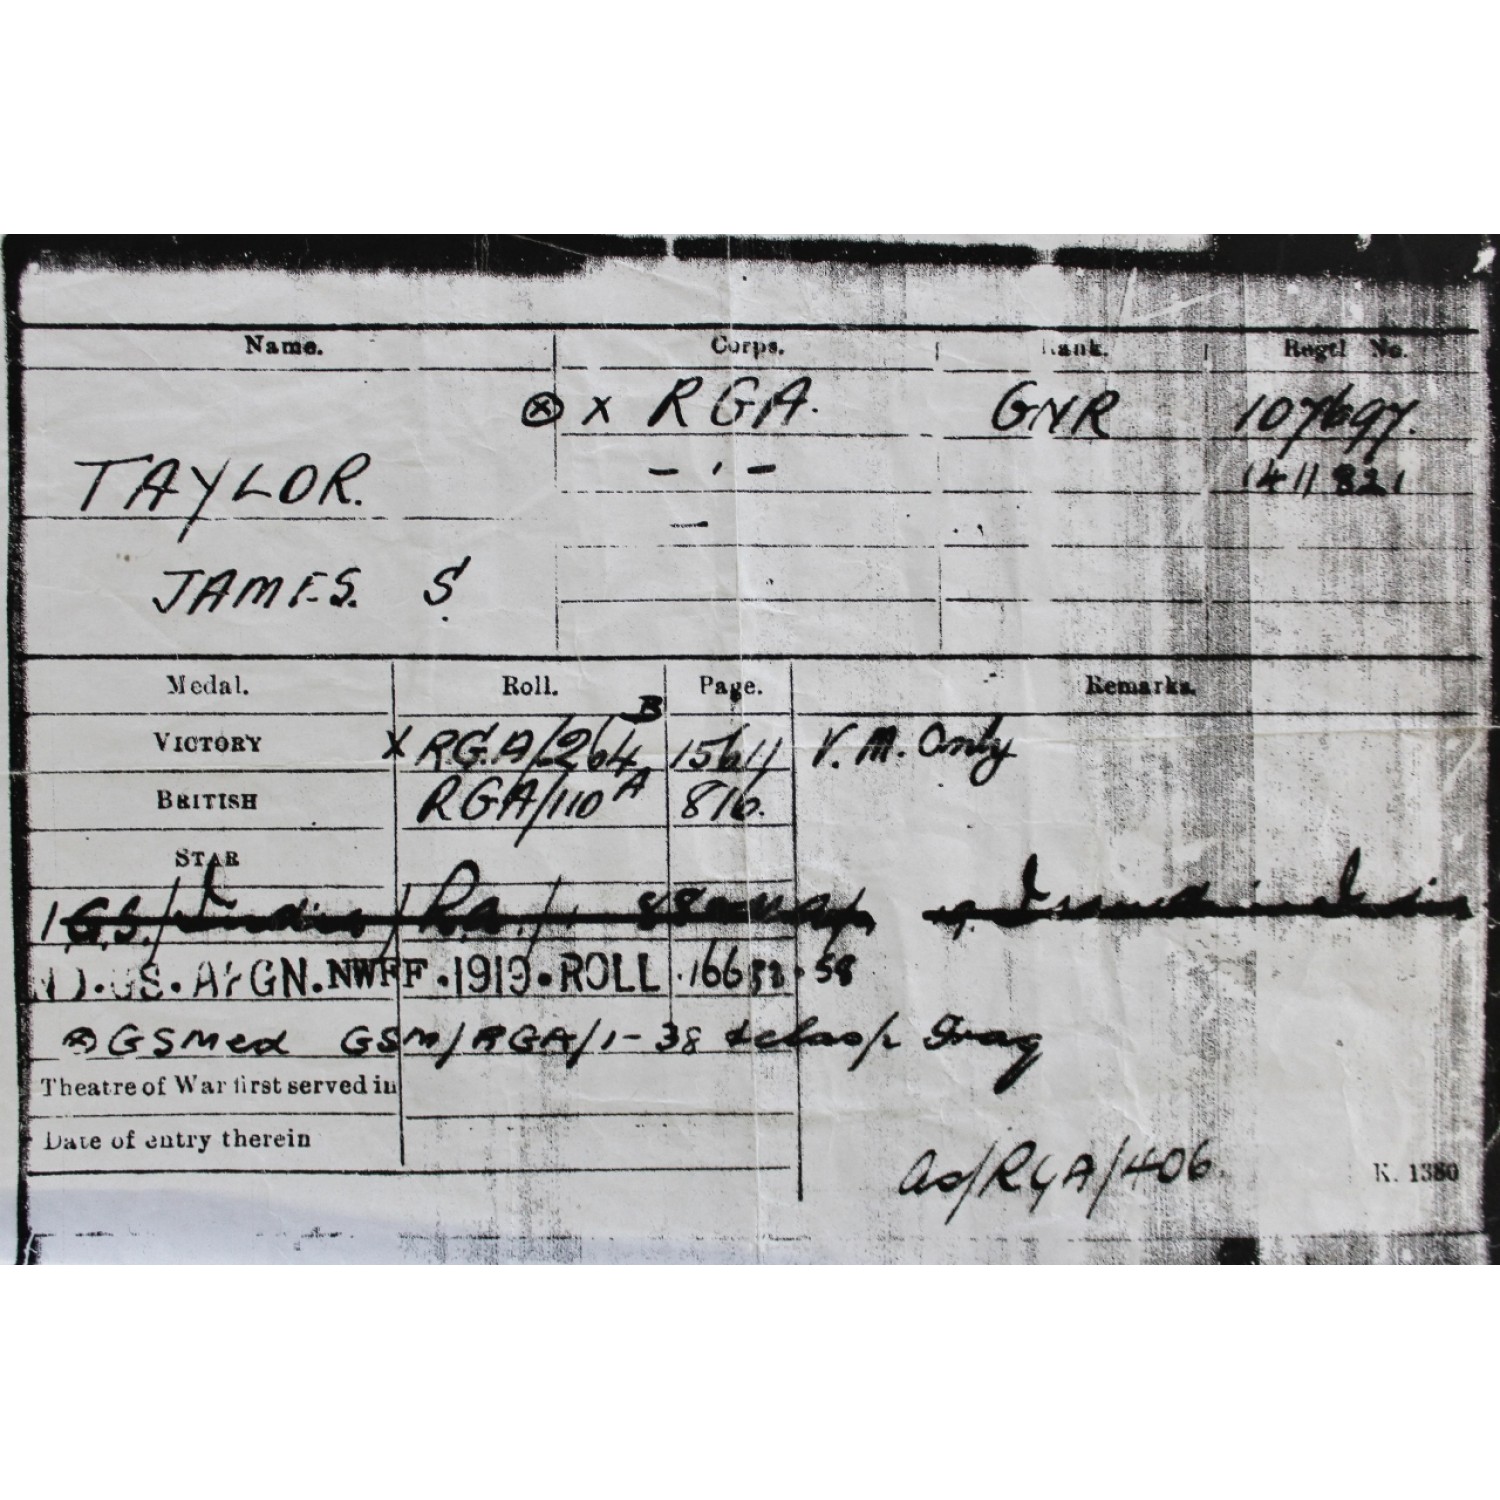 Name. Corps. Rank. Regtl No.
ⓧ x RGA. GNR 107697.
TAYLOR. — " — 1411821
JAMES. S.
Medal. Roll. Page. Remarks.
VICTORY X R.G.A/264 B 15611 V.M. Only
BRITISH RGA/110 A 816.
STAR
I.G.S./India/ R.A./
IND.GS.AFGN.NWFF.1919.ROLL .166 58
ⓧ GSMed GSM/RGA/1-38 & clasp Iraq
Theatre of War first served in
Date of entry therein
ad/RGA/406. K. 1380